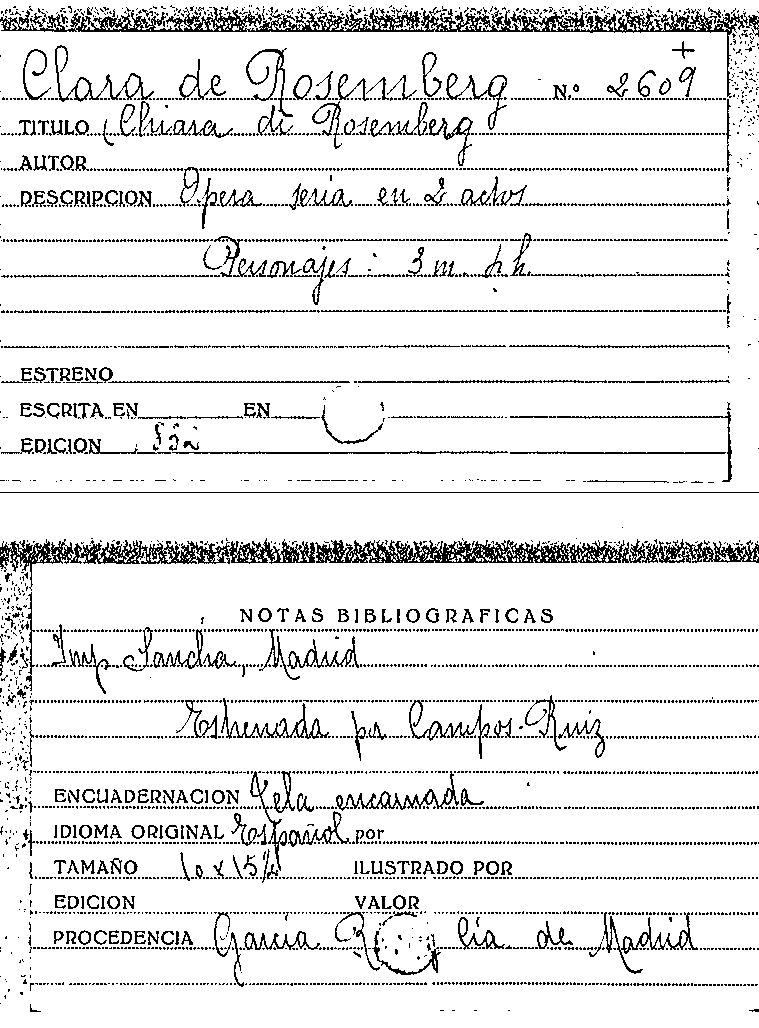 Clara de Rosemberg N.º 2609
TITULO (Chiara di Rosemberg
AUTOR
DESCRIPCION Opera seria en 2 actos
Personajes: 3 m. h.
ESTRENO
ESCRITA EN EN
EDICION
NOTAS BIBLIOGRAFICAS
Imp Sancha, Madrid
Estrenada por Campos-Ruiz
ENCUADERNACION Tela encarnada
IDIOMA ORIGINAL Español por
TAMAÑO 10 x 15½ ILUSTRADO POR
EDICION VALOR
PROCEDENCIA García lia de Madrid